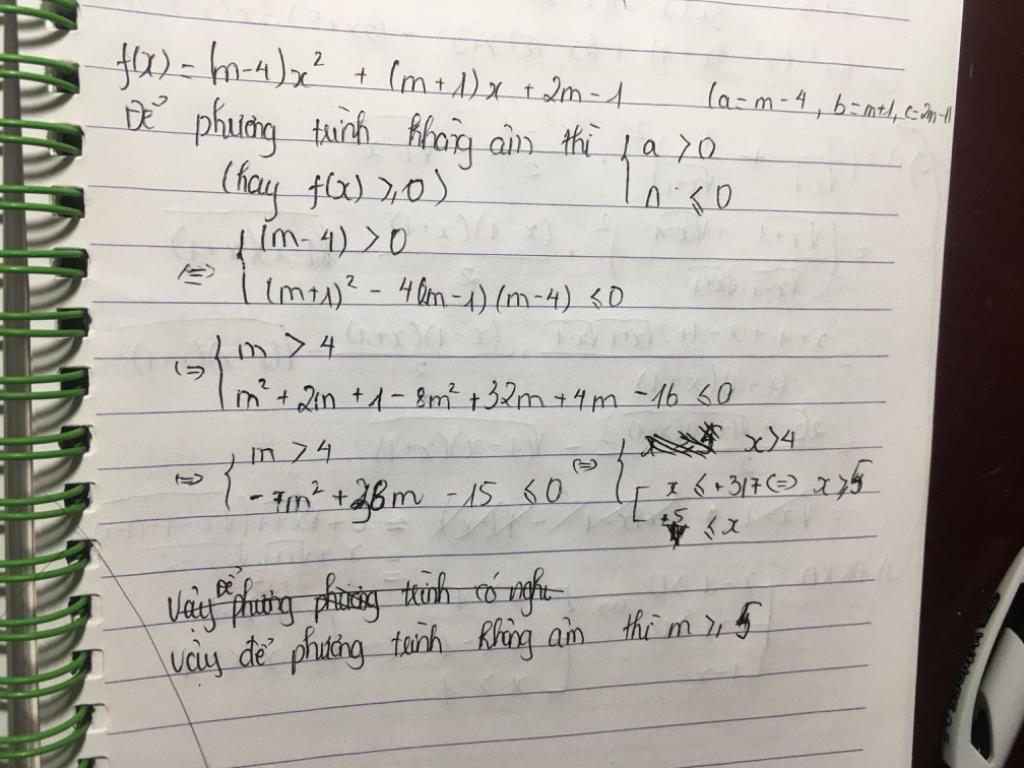 f(x) = (m-4)x² + (m+1)x + 2m-1 (a=m-4, b=m+1, c=2m-1)
Để phương trình không âm thì { a > 0
(hay f(x) ≥ 0) { Δ ≤ 0
<=> { (m-4) > 0
{ (m+1)² - 4(2m-1)(m-4) ≤ 0
<=> { m > 4
{ m² + 2m + 1 - 8m² + 32m + 4m - 16 ≤ 0
<=> { m > 4 <=> { x > 4
{ -7m² + 38m - 15 ≤ 0 [ x ≤ +3/7 <=> x ≥ 5
+5 ≤ x
Vậy Để phương phương trình có nghi
vậy để phương trình không âm thì m ≥ 5